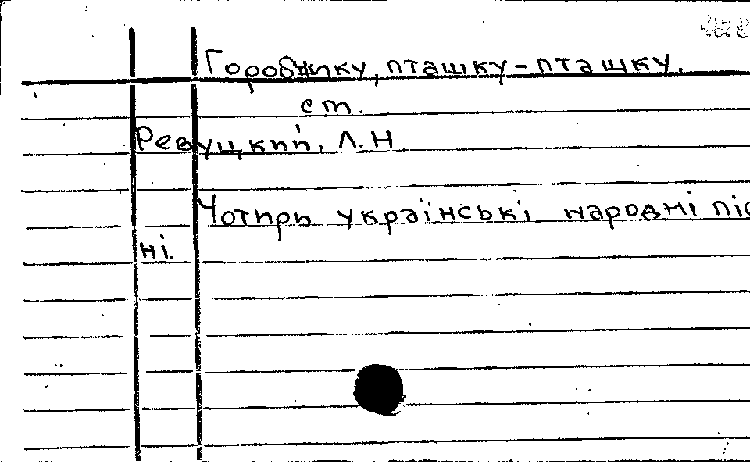 Горобчику, пташку-пташку.
ст.
Ревуцкий, Л.Н
Чотирь українські народні піс
ні.